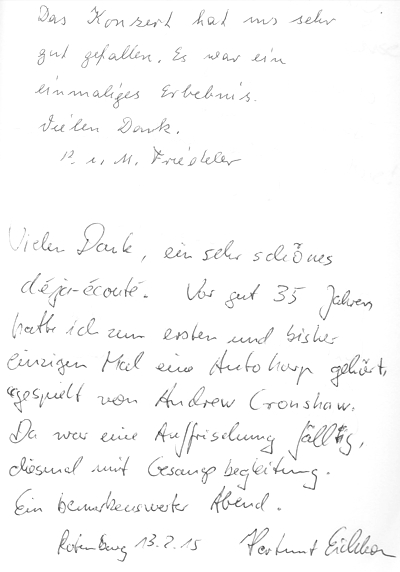 Das Konzert hat uns sehr
gut gefallen. Es war ein
einmaliges Erlebnis.
Vielen Dank.
P. u. M.
Vielen Dank, ein sehr schönes
déja-écouté. Vor gut 35 Jahren
hatte ich zum ersten und bisher
einzigen Mal eine Autoharp gehört,
gespielt von Andrew Cronshaw.
Da war eine Auffrischung fällig,
diesmal mit Gesangsbegleitung.
Ein bemerkenswerter Abend.
Rotenburg 13.2.15 Hartmut